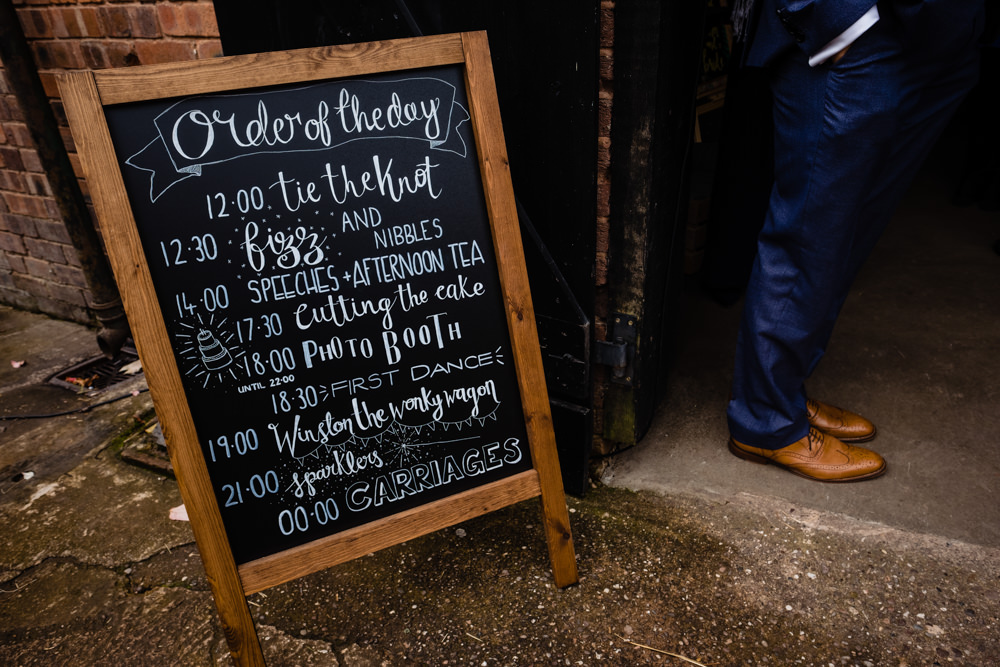 Order of the day
12·00 tie the Knot
12·30 fizz AND NIBBLES
14·00 SPEECHES + AFTERNOON TEA
17·30 Cutting the cake
18·00 PHOTO BOOTH
UNTIL 22·00
18·30 FIRST DANCE
19·00 Winston the wonky wagon
21·00 sparklers
00·00 CARRIAGES